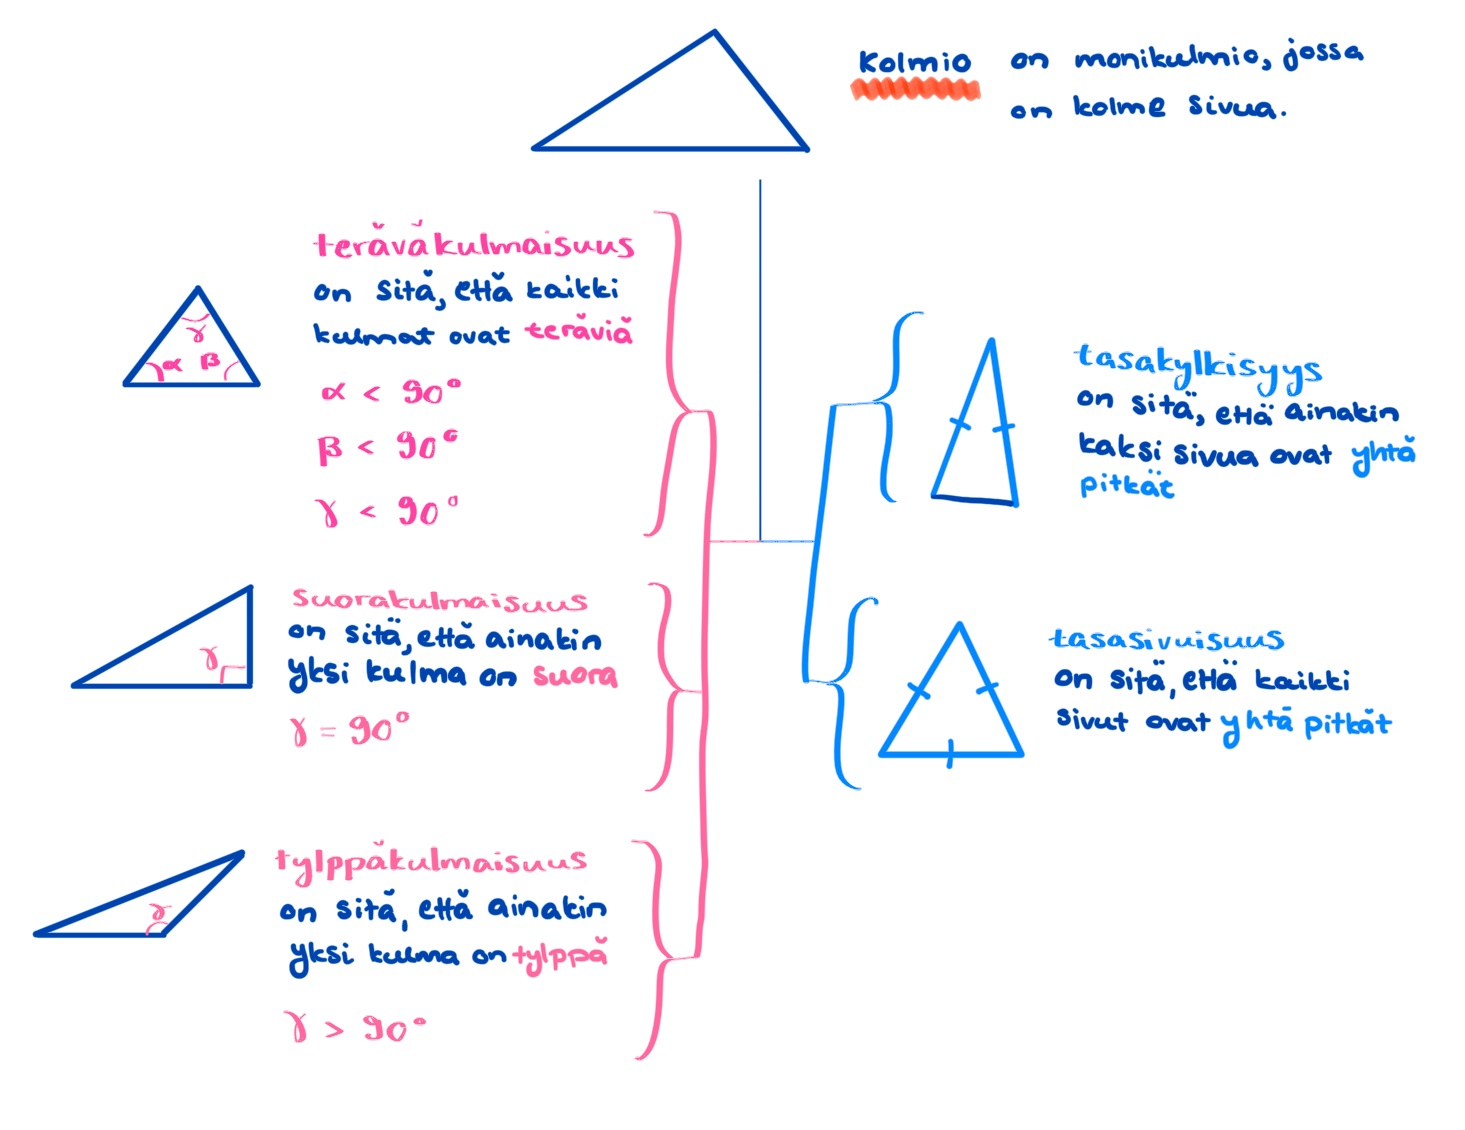 Kolmio on monikulmio, jossa
on kolme sivua.
teräväkulmaisuus
on sitä, että kaikki
kulmat ovat teräviä
α < 90°
β < 90°
γ < 90°
γ
α β
suorakulmaisuus
on sitä, että ainakin
yksi kulma on suora
γ = 90°
γ
tylppäkulmaisuus
on sitä, että ainakin
yksi kulma on tylppä
γ > 90°
γ
tasakylkisyys
on sitä, että ainakin
kaksi sivua ovat yhtä
pitkät
tasasivuisuus
on sitä, että kaikki
sivut ovat yhtä pitkät